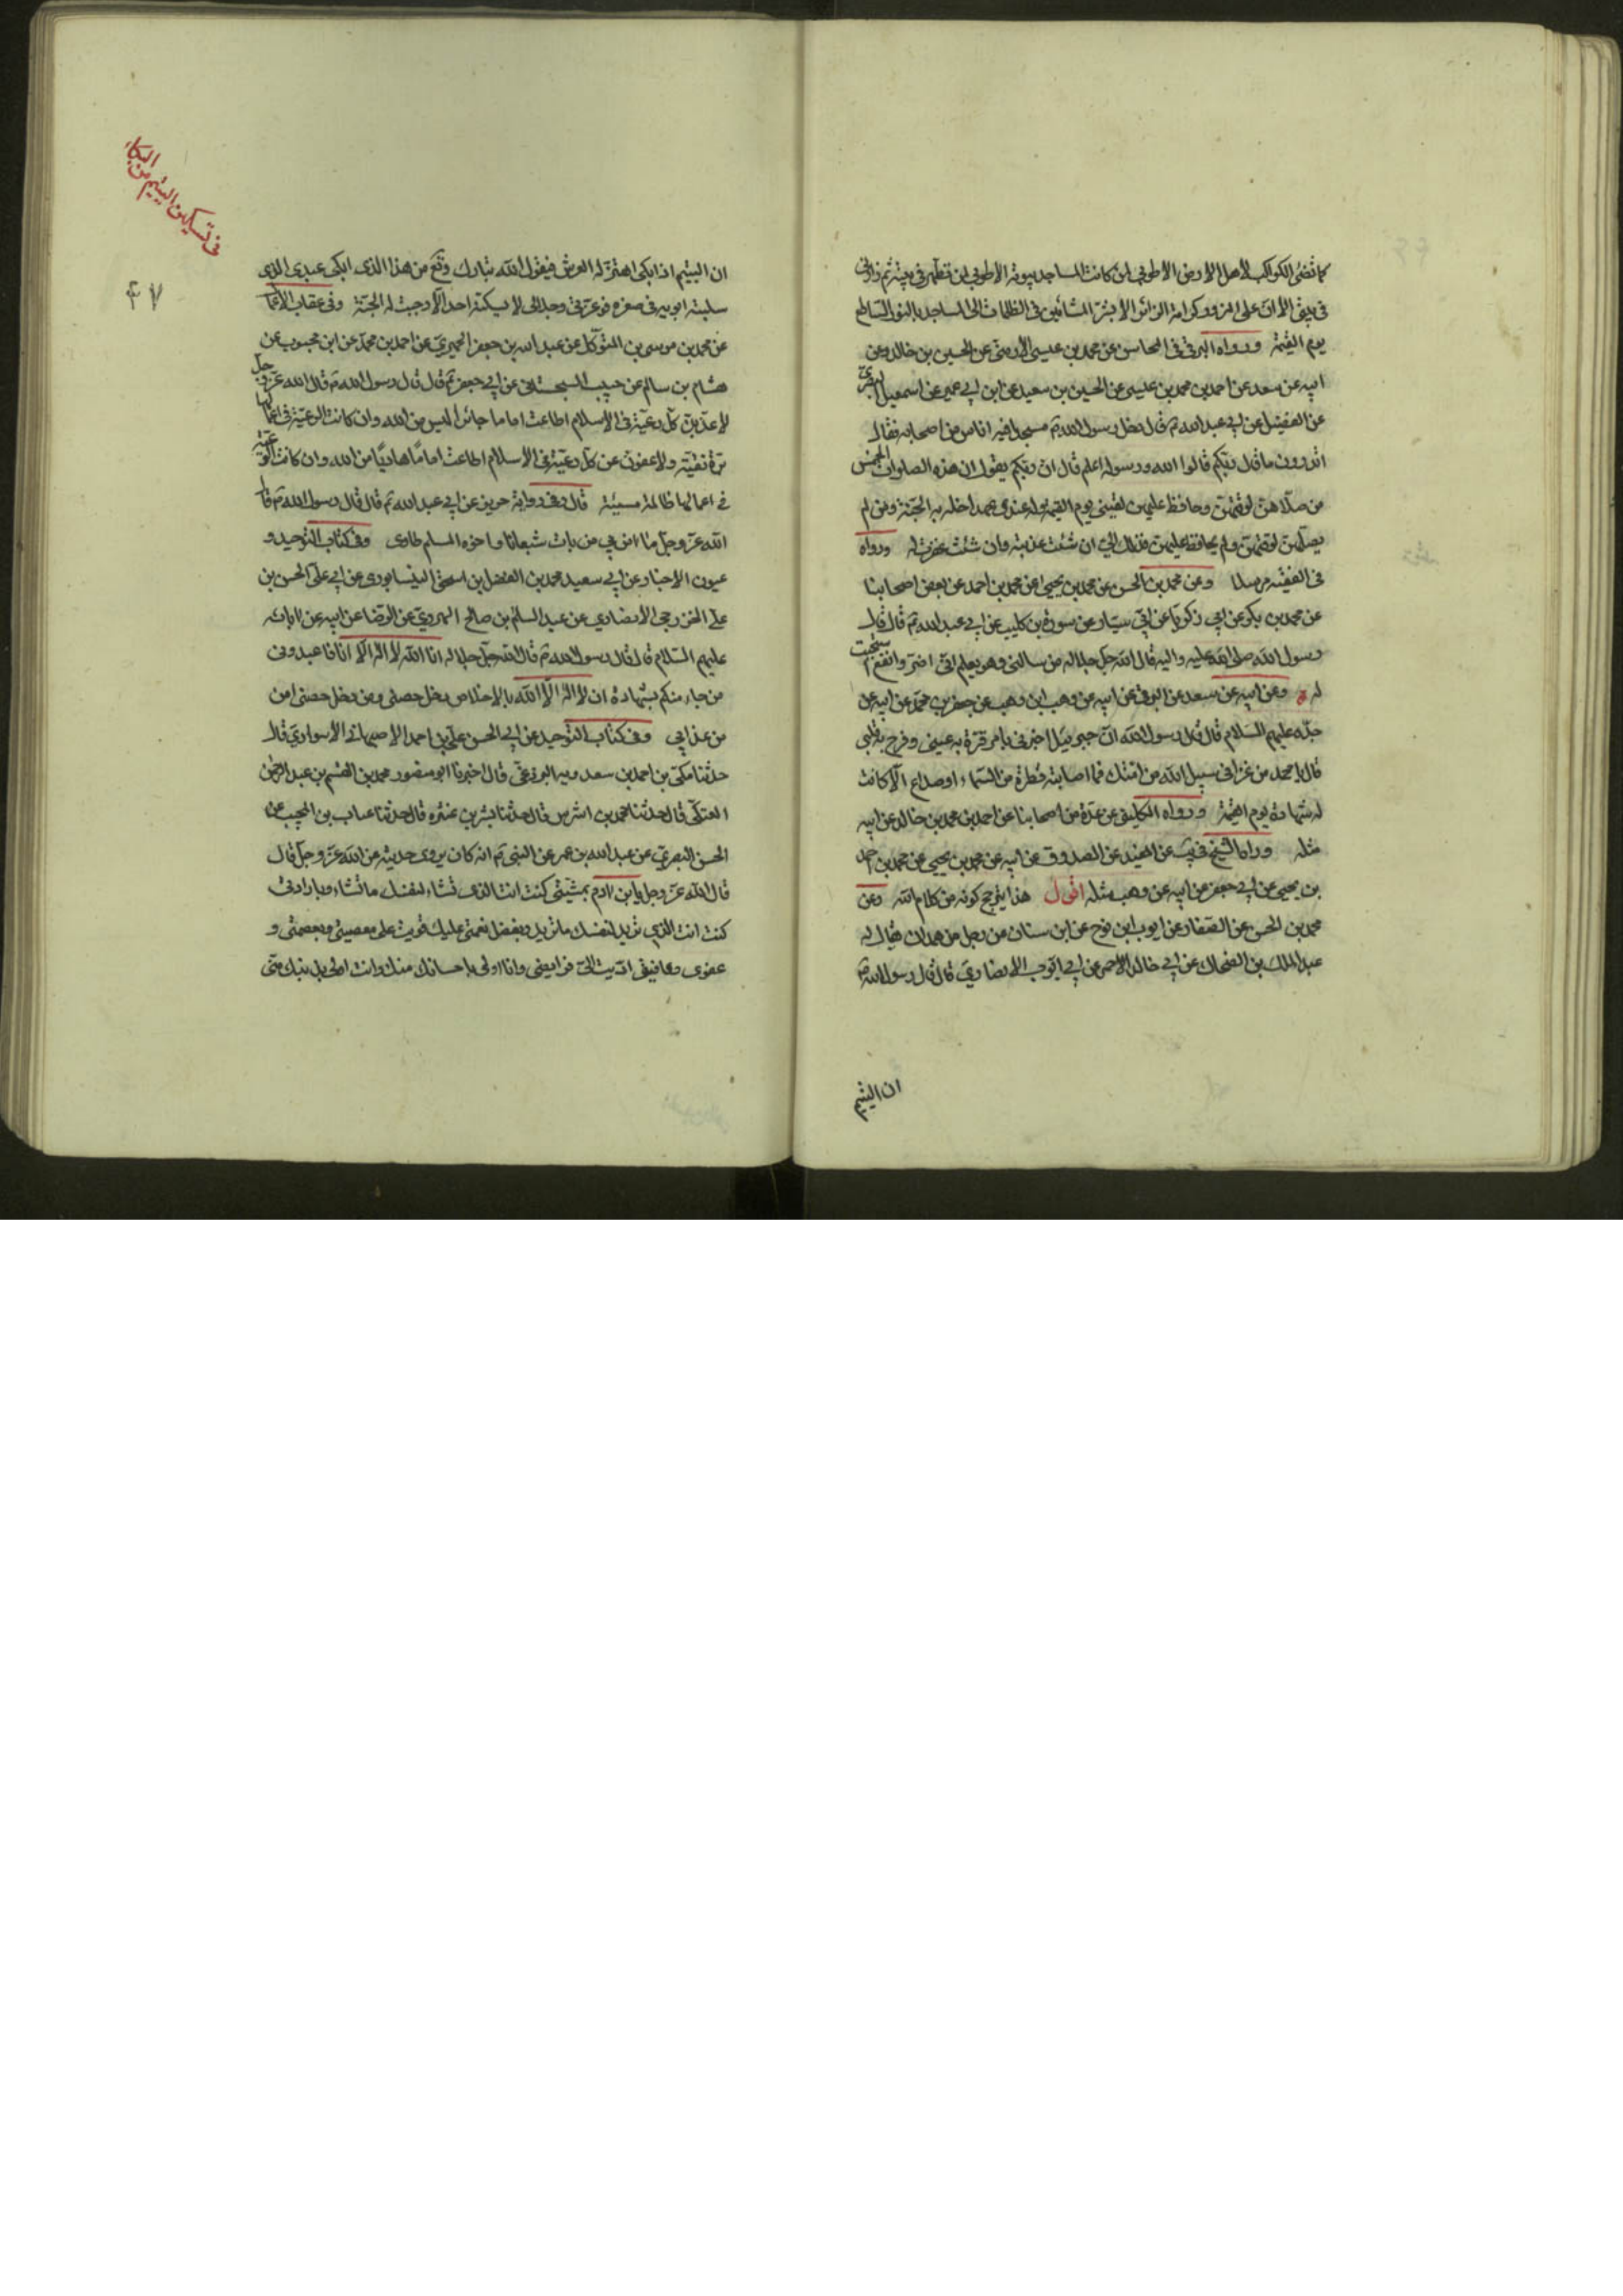 كما تضئ الكواكب لاهل الارض الا طوبى لمن كانت المساجد بيوته الا طوبى لمن تطهر في بيته ثم زارني
في بيتي الا ان على المزور كرامة الزائر الا بشر المشائين في الظلمات الى المساجد بالنور الساطع
يوم القيمة ورواه البرقي في المحاسن عن محمد بن عيسى الارمني عن الحسين بن خالد وعن
ابيه عن سعد عن احمد بن محمد بن عيسى عن الحسين بن سعيد عن ابن ابي عمير عن اسمعيل البصري
عن الفضيل عن ابي عبد الله ع قال دخل رسول الله ص مسجدا فيه اناس من اصحابه فقال
اتدرون ما قال ربكم قالوا الله ورسوله اعلم قال ان ربكم يقول ان هذه الصلوات الخمس
من صلاهن لوقتهن وحافظ عليهن لقيني يوم القيمة وله عندي عهد ادخله به الجنة ومن لم
يصلهن لوقتهن ولم يحافظ عليهن فذلك الي ان شئت عذبته وان شئت غفرت له ورواه
في الفقيه مرسلا وعن محمد بن الحسن عن محمد بن يحيى عن محمد بن احمد عن بعض اصحابنا
عن محمد بن بكر عن زكريا عن ابي سيار عن سورة بن كليب عن ابي عبد الله ع قال قال
رسول الله صلى الله عليه واله قال الله جل جلاله من سالني وهو يعلم اني اضر وانفع استجبت
له وعن ابيه عن سعد عن البرقي عن ابيه عن وهب ابن وهب عن جعفر بن محمد عن ابيه عن
جده عليهم السلام قال قال رسول الله ان جبرئيل اخبرني بامر قرة به عيني وفرح به قلبي
قال يا محمد من غزا في سبيل الله من امتك فما اصابته قطرة من السماء او صداع الا كانت
له شهادة يوم القيمة ورواه الكليني عن عدة من اصحابنا عن احمد بن محمد بن خالد عن ابيه
مثله ورواه الشيخ في يب عن المفيد عن الصدوق عن ابيه عن محمد بن يحيى عن محمد بن احمد
بن يحيى عن ابي جعفر عن ابيه عن وهب مثله اقول هذا يترجح كونه من كلام الله وعن
محمد بن الحسن عن الصفار عن ايوب ابن نوح عن ابن سنان عن رجل من همدان يقال له
عبد الملك بن الضحاك عن ابي خالد الاحمر عن ابي ايوب الانصاري قال قال رسول الله ص
ان اليتيم
في تسكين اليتيم من البكاء
٤٧
ان اليتيم اذا بكى اهتز له العرش فيقول الله تبارك وتع من هذا الذي ابكى عبدي الذي
سلبته ابويه في صغره فوعزتي وجلالي لا يسكته احد الا وجبت له الجنة وفي عقاب الاعمال
عن محمد بن موسى بن المتوكل عن عبد الله بن جعفر الحميري عن احمد بن محمد عن ابن محبوب عن
هشام بن سالم عن حبيب السجستاني عن ابي جعفر ع قال قال رسول الله ص قال الله عز وجل
لاعذبن كل رعية في الاسلام اطاعت اماما جائرا ليس من الله وان كانت الرعية في اعمالها
برة تقية ولاعفون عن كل رعية في الاسلام اطاعت اماما هاديا من الله وان كانت الرعية
في اعمالها ظالمة مسيئة قال وفي رواية حريز عن ابي عبد الله ع قال قال رسول الله ص قال
الله عز وجل ما امن بي من بات شبعانا واخوه المسلم طاوي وفي كتاب التوحيد و
عيون الاخبار عن ابي سعيد محمد بن الفضل بن اسحق النيسابوري عن ابي علي الحسن بن
علي الخزرجي الانصاري عن عبد السلم بن صالح الهروي عن الرضا عن ابيه عن ابائه
عليهم السلام قال قال رسول الله ص قال الله جل جلاله انا الله لا اله الا انا فاعبدوني
من جاء منكم بشهادة ان لا اله الا الله بالاخلاص دخل حصني ومن دخل حصني امن
من عذابي وفي كتاب التوحيد عن ابي الحسن علي بن احمد الاصبهاني الاسواري قال
حدثنا مكي بن احمد بن سعدويه البردعي قال اخبرنا ابو منصور محمد بن القسم بن عبد الرحمن
العتكي قال حدثنا محمد بن اشرس قال حدثنا بشر بن قال حدثنا بن عن
الحسن البصري عن عبد الله بن عمر عن النبي ص انه كان يروي حديثه عن الله عز وجل قال
قال الله عز وجل يا بن ادم بمشيتي كنت انت الذي تشاء لنفسك ما تشاء وبارادتي
كنت انت الذي تريد لنفسك ما تريد وبفضل نعمتي عليك قويت على معصيتي وبعصمتي و
عفوي وعافيتي اديت الي فرايضي وانا اولى باحسانك منك وانت اولى بذنبك مني